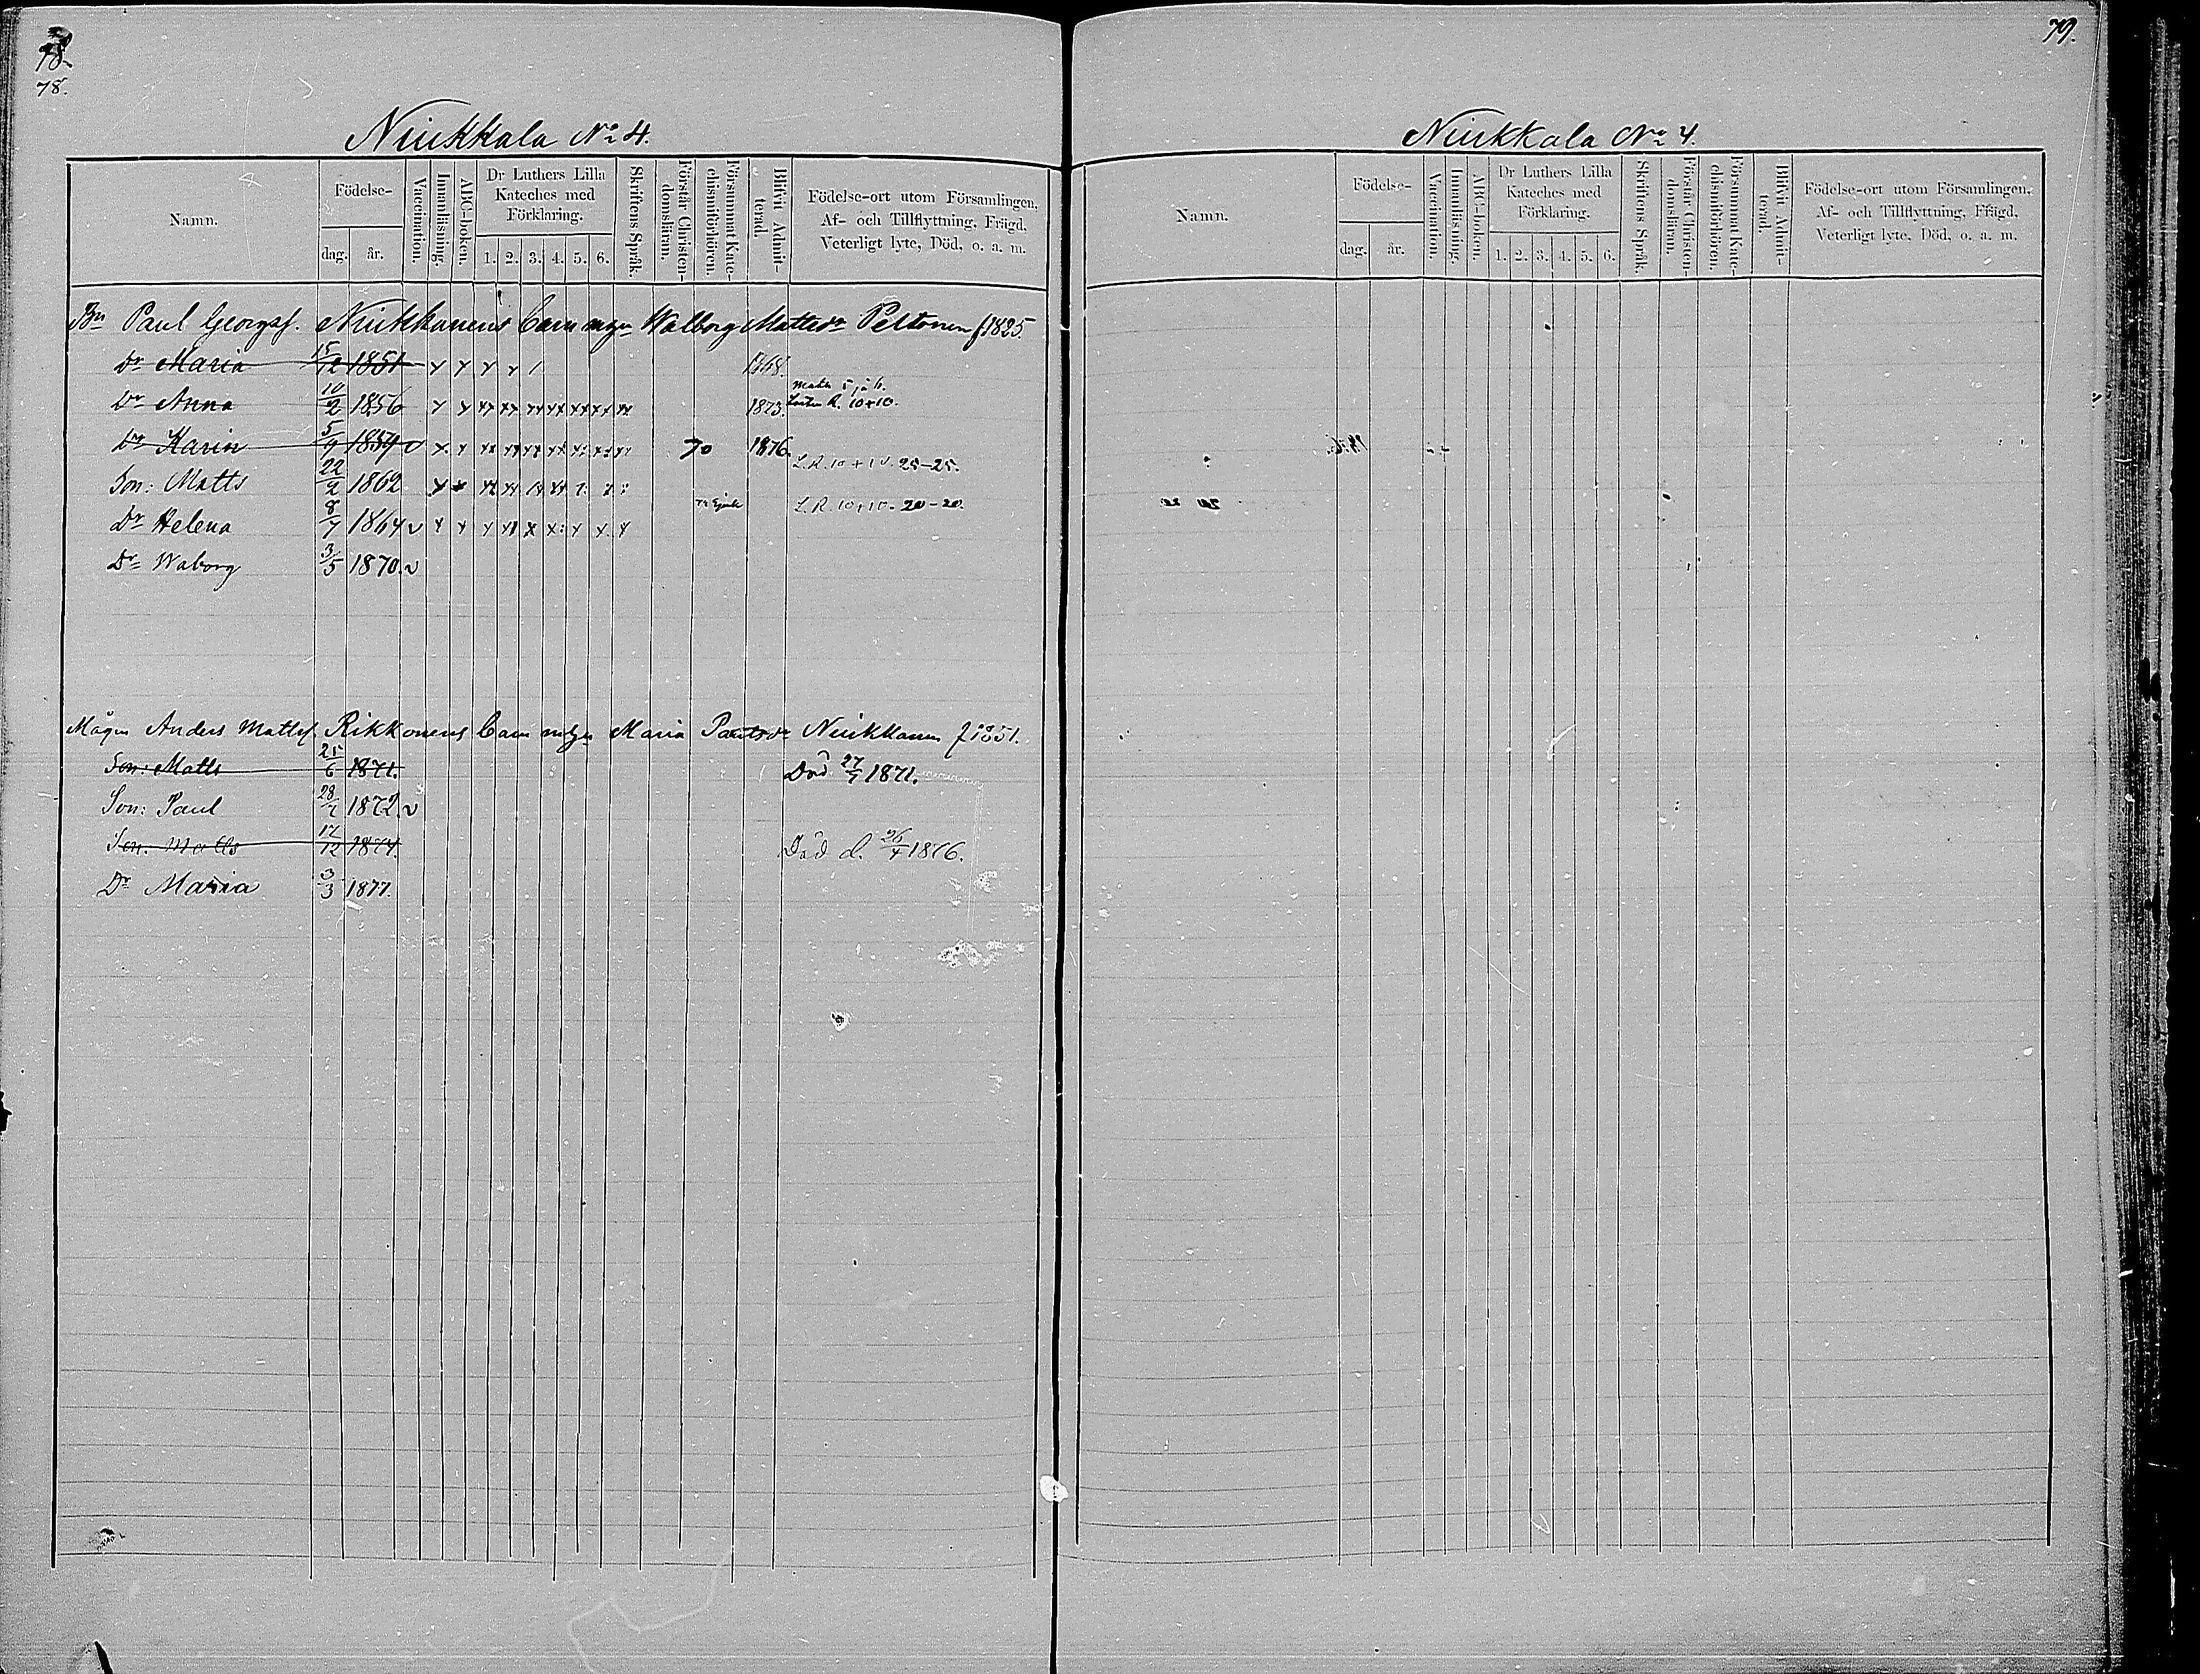 78.
78.
Niukkala No 4.
Namn.
Födelse-
dag. år.
Vaccination.
Innanläsning.
ABC-boken.
Dr Luthers Lilla Kateches med Förklaring.
1. 2. 3. 4. 5. 6.
Skriftens Språk.
Förstår Christen-domsläran.
Försummat Kate-chismiförhören.
Blifvit Admit-terad.
Födelse-ort utom Församlingen,
Af- och Tillflyttning, Frägd,
Veterligt lyte, Död, o. a. m.
Bn Paul Georgsf. Niukkanens barn m. Walborg Mattsdr Peltonen f 1825.
Dr Maria 15/12 1851 1868.
Dr Anna 10/2 1856 1873. 10+10.
Dr Karin 5/9 1859 v 70 1876.
Son: Matts 22/2 1862 L.R. 10+10. 25-25.
Dr Helena 8/7 1864 v L.R. 10+10. 20-20.
Dr Waborg 3/5 1870. v
Mågen Anders Mattsf. Rikkonens barn m. Maria Paulsdr Niukkanen f 1851.
Son: Matts 25/6 1871. Död 27/7 1871.
Son: Paul 28/7 1872. v
Son: Matts 17/12 1874. Död d. 26/4 1876.
Dr Maria 3/3 1877.
79.
Niukkala No 4.
Namn.
Födelse-
dag. år.
Vaccination.
Innanläsning.
ABC-boken.
Dr Luthers Lilla Kateches med Förklaring.
1. 2. 3. 4. 5. 6.
Skriftens Språk.
Förstår Christen-domsläran.
Försummat Kate-chismiförhören.
Blifvit Admit-terad.
Födelse-ort utom Församlingen,
Af- och Tillflyttning, Frägd,
Veterligt lyte, Död, o. a. m.